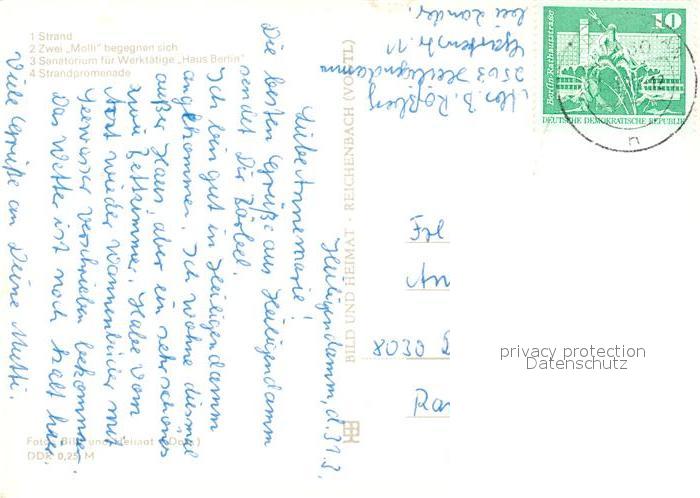 1 Strand
2 Zwei „Molli" begegnen sich
3 Sanatorium für Werktätige „Haus Berlin"
4 Strandpromenade
Abs. B. Roßberg
2503 Heiligendamm
Gartenstr. 11
bei Zander
10
Berlin-Rathausstraße
DEUTSCHE DEMOKRATISCHE REPUBLIK
Heiligendamm, d. 31.3.
Liebe Annemarie!
Die besten Grüße aus Heiligendamm
sendet Dir Bärbel.
Ich bin gut in Heiligendamm
angekommen. Ich wohne diesmal
außer Haus aber ein sehr schönes
zwei Bettzimmer. Habe vom
Arzt wieder Wannenbäder mit
Seewasser verschrieben bekommen.
Das Wetter ist noch kalt hier.
Viele Grüße an Deine Mutti.
BILD UND HEIMAT · REICHENBACH (VOGTL)
8030
privacy protection
Datenschutz
Foto: Bild und Heimat
DDR 0,25 M